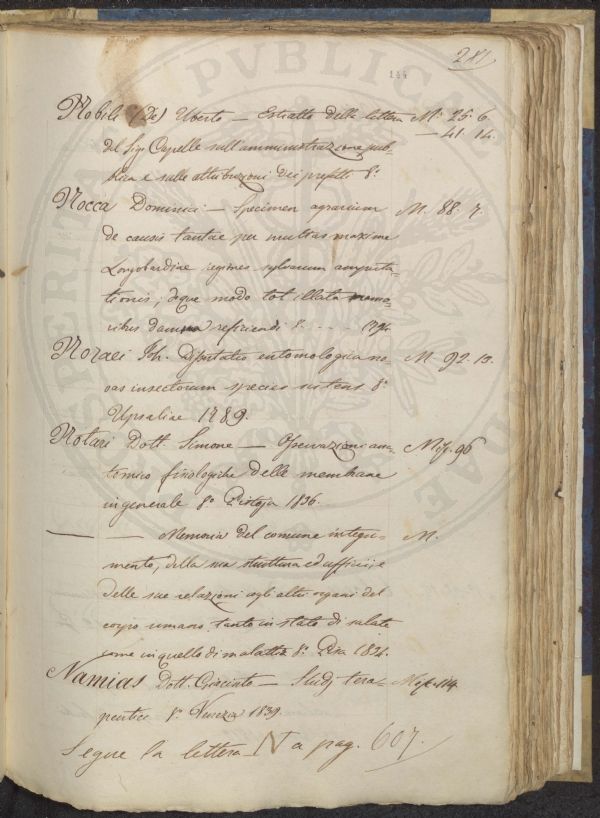 281
144
Nobili (De) Uberto — Estratto della lettera M. 25. 6.
— 41. 14.
del Sig. Capelle sull'amministrazione pub=
blica e sulle attribuzioni dei prefetti 8.°
Nocca Dominici — Specimen agrarium M. 88. 7.
de causis tantae per multas maxime
Longobardiae regiones sylvarum amputa=
tionis; deque modo tot illata nemo=
ribus damna reficiendi 8. - - - 1794.
Noraei Joh. Disputatio entomologica no= M. 92. 13.
vas insectorum species sistens 8.°
Upsaliae 1789.
Notari Dott. Simone — Osservazioni ana= Misc. 96
tomico fisiologiche delle membrane
in generale 8.° Pistoja 1836.
— — Memoria del comune integu= M.
mento, della sua struttura ed uffici; e
delle sue relazioni agli altri organi del
corpo umano tanto in stato di salute
come in quello di malattia 8.° Pisa
Namias Dott. Giacinto — Studj tera= Misc. 114
peutici 8.° Venezia 1839.
Segue la lettera N a pag. 607.